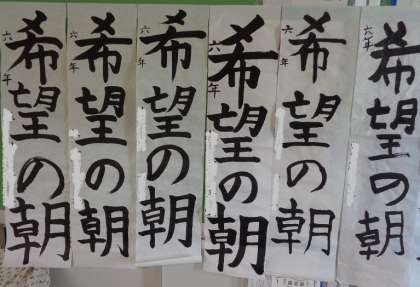 希望の朝
六年
希望の朝
六年
希望の朝
六年
希望の朝
六年
希望の朝
六年
希望の朝
六年